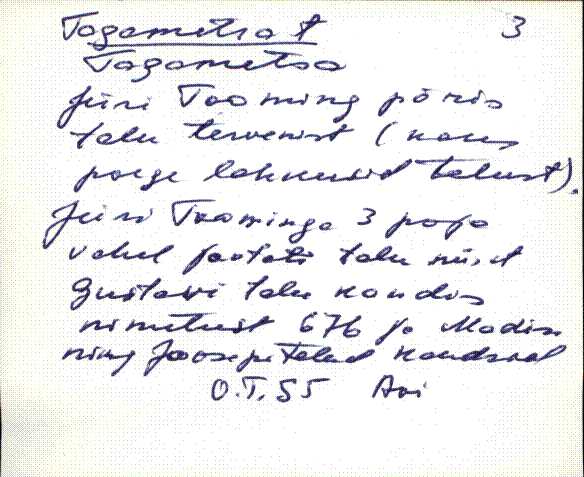 Tagametsa t 3
Tagametsa
Jüri Tooming päris
talu tervenist (kaks
poega lahkusid talust).
Jüri Toominga 3 poja
vahel jaotati talu nüüd
Gustavi talu kandis
nimetust 67b ja Madise
ning Joosepi talud kandsid
O.T. 55 Avi